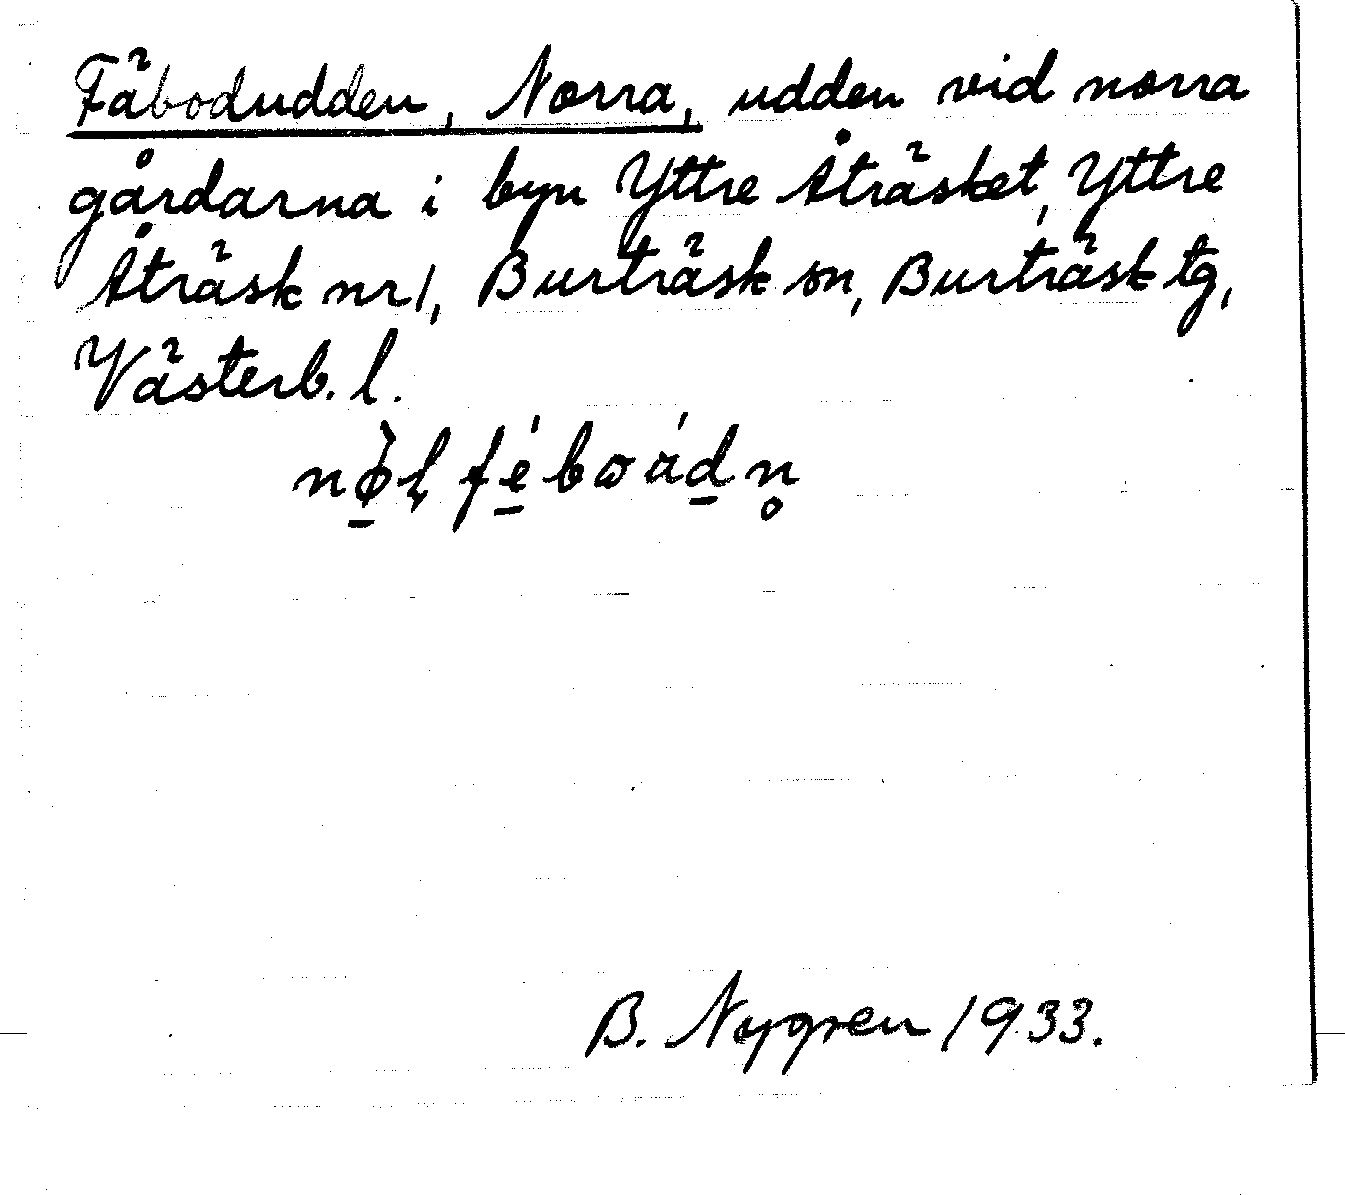 Fäbodudden, Norra, udden vid norra
gårdarna i byn Yttre Åträsket, Yttre
Åträsk nr 1, Burträsk sn, Burträsk tg,
Västerb. l.
B. Nygren 1933.